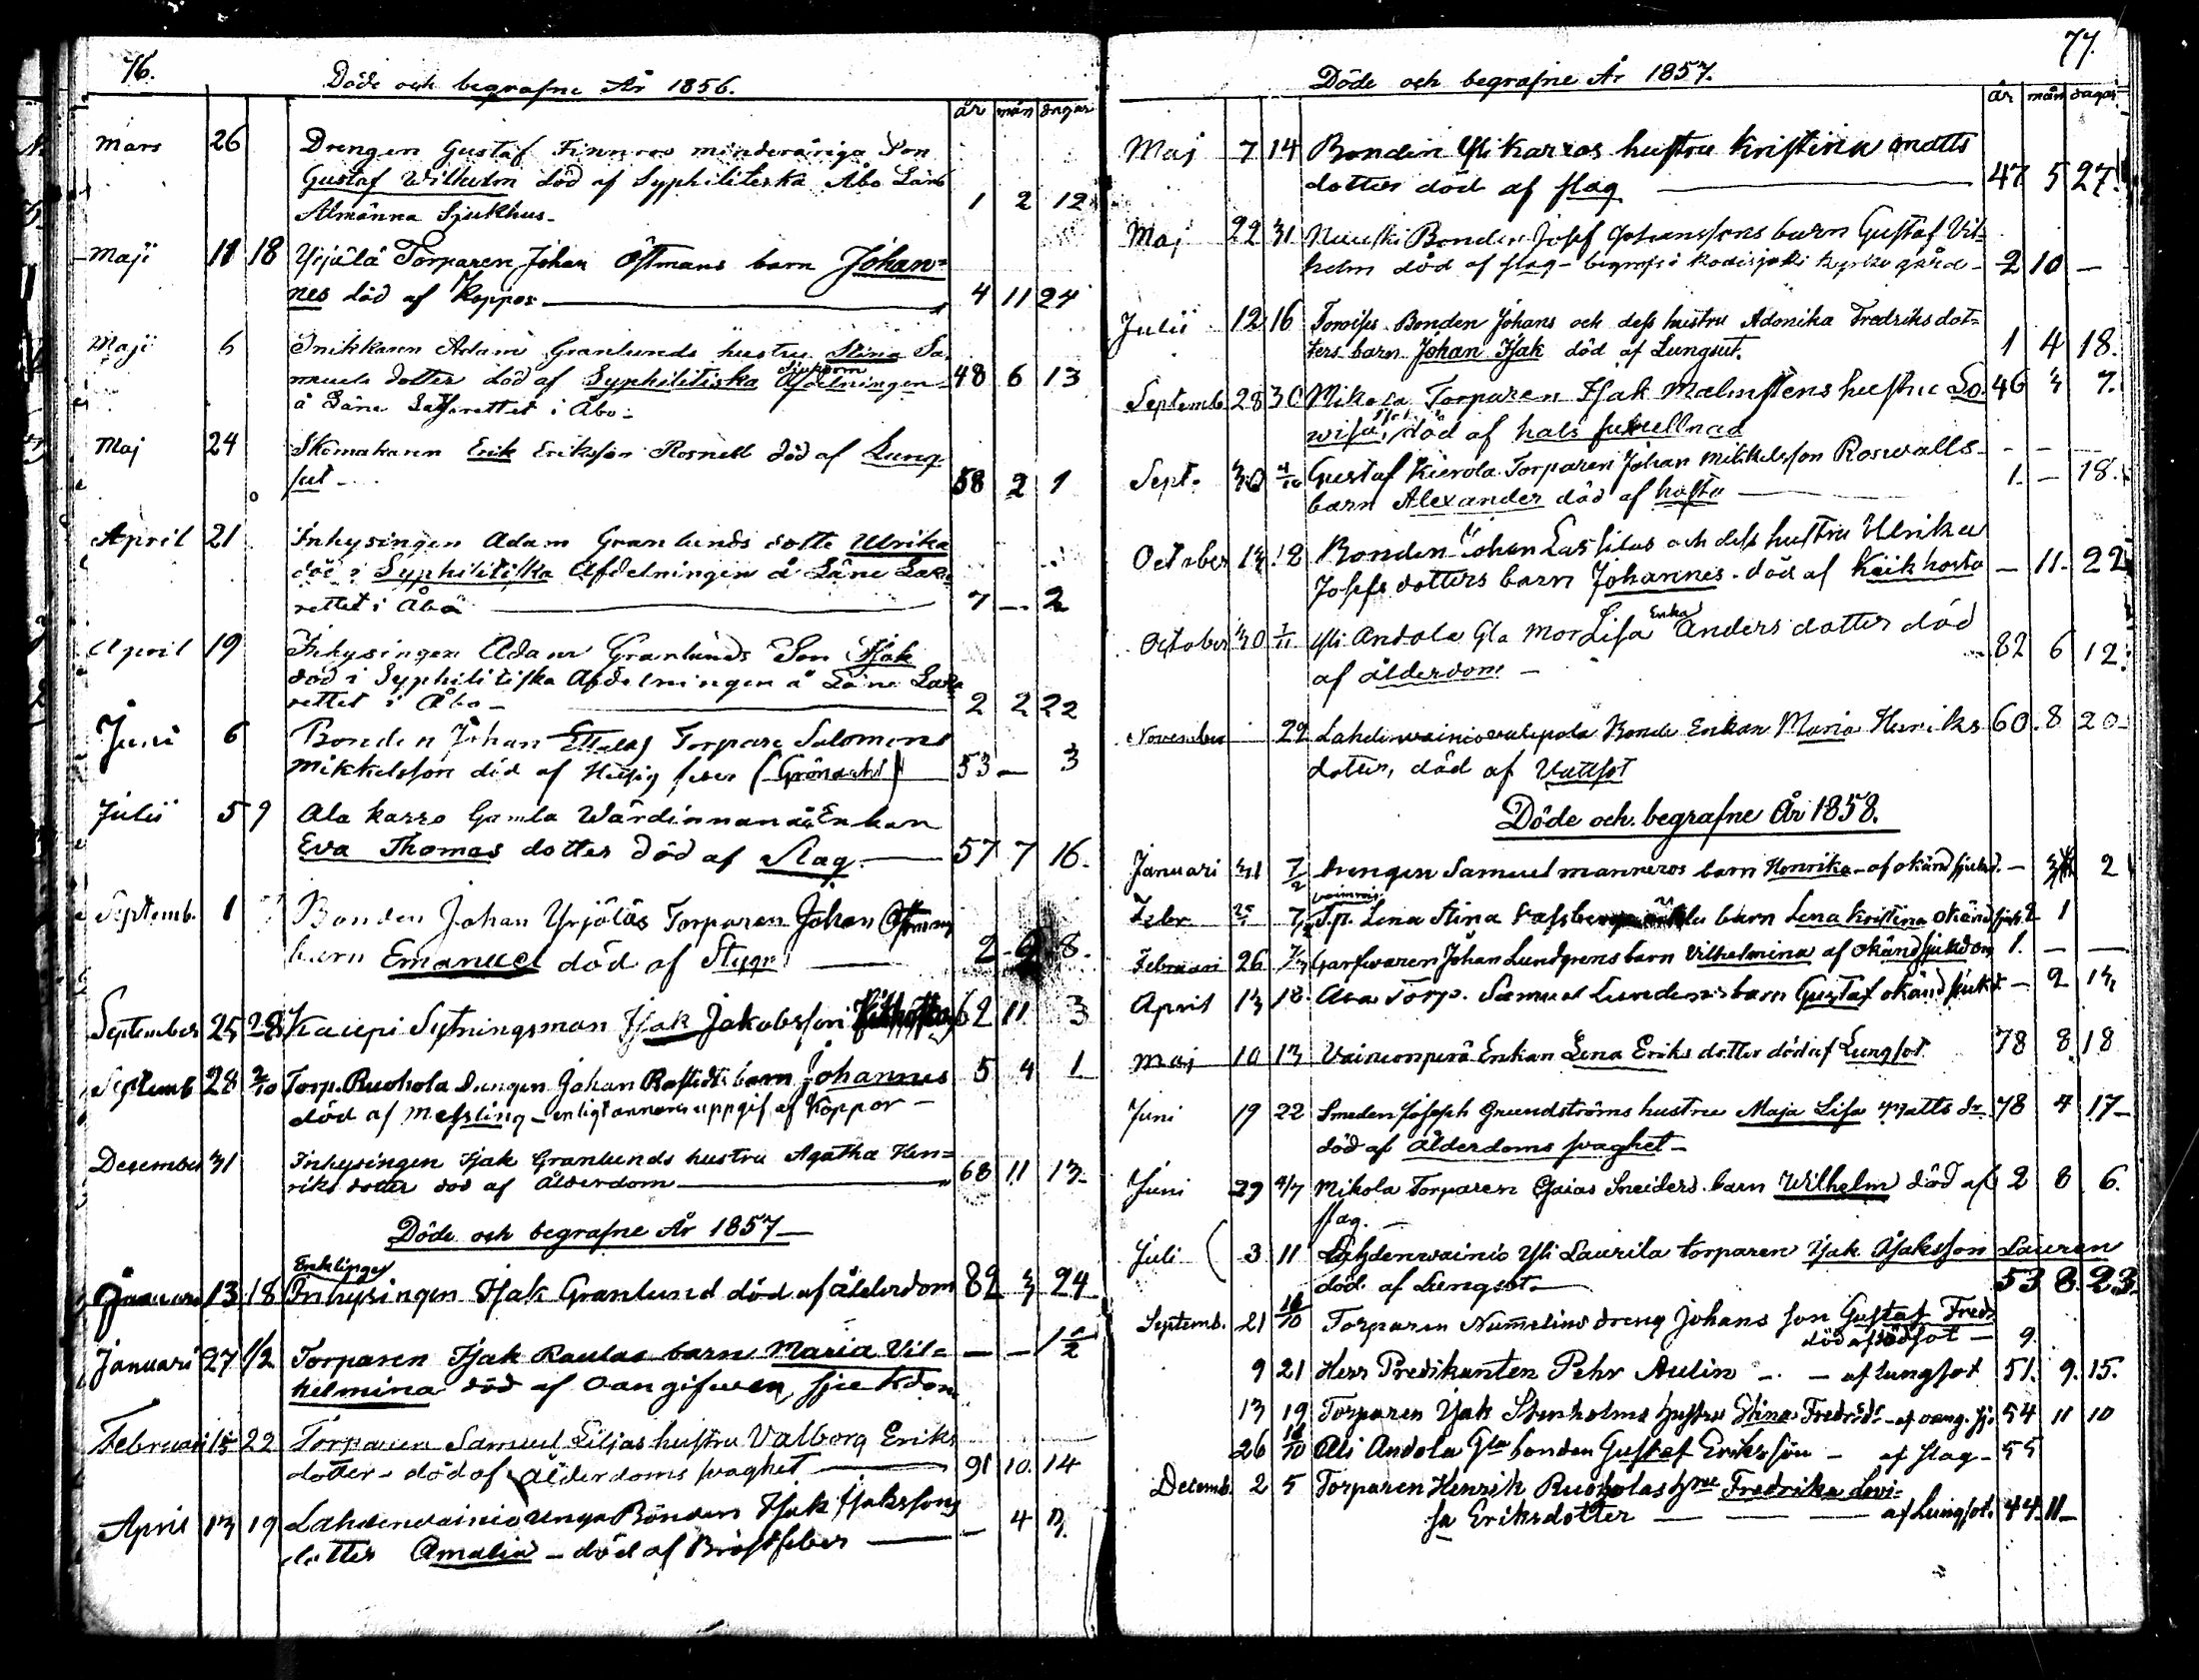 76.
Döde och begrafne År 1856.
år mån dagar
Mars 26 Drengen Gustaf Finnros minderåriga Son
Gustaf Wilhelm död af Syphilitiska Åbo Läns
Almänna Sjukhus 1 2 12
Maji 11 18 Yrjälä Torparen Johan Östmans barn Johan=
nes död af Koppor 4 11 24
Maji 6 Snikkaren Adam Granlunds hustru Stina Sa
muels dotter död af Syphilitiska Sjukdom Afdelningen 48 6 13
å Läne Lazarettet i Åbo
Maj 24 Skomakaren Erik Eriksson Rosnell död af Lung
sot 58 2 1
April 21 Inhysingen Adam Granlunds dotte Ulrika
död i Syphilitiska Afdelningen å Läne Laza
rettet i Åbo 7 — 2
April 19 Inhysingen Adam Granlunds Son Isak
död i Syphilitiska Afdelningen å Läne Laza
rettet i Åbo 2 2 22
Juni 6 Bonden Johan Ettalas Torpare Salomons
Mikkelsson död af Hetsig feber 53 — 3
Julii 5 9 Ala Karro Gamla Wärdinnan Enkan
Eva Thomas dotter död af Slag 57 7 16.
Septemb. 1 Bonden Johan Yrjöläs Torparen Johan Östmans
barn Emanuel död af 2 8.
September 25 28 Kaupi Sytningsman Isak Jakobsson 62 11 3
Septemb 28 2/10 Torp. Ruohola Drengen Johan Rostedts barn Johannes 5 4 1
död af Messling - enligt annans uppgif af Koppor —
December 31 Inhysingen Isak Granlunds hustru Agatha Hen=
riks dotter död af Ålderdom 68 11 13
Döde och begrafne År 1857
Enklingen
Januari 13 18 Inhysingen Isak Granlund död af ålderdom 82 3 24
Januari 27 1/2 Torparen Isak Raulas barn Maria Vil= — — 1 1/2
helmina död af oangifwen sjukdom
Februari 15 22 Torparen Samuel Liljas hustru Valborg Eriks
dotter - död af ålderdoms svaghet 91 10. 14
April 13 19 Lahdenvainio Unga Bonden Isak Isakssons
dotter Amalia - död af Bröstfeber — 4
77.
Döde och begrafne År 1857.
år mån dagar
Maj 7 14 Bonden Yli Karros hustru Kristina Matts
dotter död af slag 47 5 27.
Maj 22 31 Bonden Josef Johanssons barn Gustaf Vil=
helm död af slag - begrafs i Kodisjoki Kyrko gård - 2 10 —
Julii 12 16 Bonden Johans och dess hustru Adonika Fredriks dot=
ters barn Johan Isak död af Lungsot. 1 4 18.
Septemb 28 30 Mikola Torparen Isak Malmstens hustru Lo 46 3 7.
wisa, död af hals swullnad
Sept. 30 4/10 Gustaf Kierola Torparen Johan Mikkelsson Roswalls
barn Alexander död af hosta 1. — 18.
October 13 18 Bonden Johan Lassilas och dess hustru Ulrika
Josefs dotters barn Johannes - död af Kikhosta — 11. 22
October 30 1/11 Yli Andola Gla Mor Lisa Enka Anders dotter död
af ålderdom 82 6 12.
November 22 Bonde Enkan Maria Henriks 60. 8 20
dotter, död af Vattsot
Döde och begrafne År 1858.
Januari 31 7/2 Drengen Samuel Manneros barn Henrika - af okänd sjukd. — 2
Febr 25 Lena Stina barn Lena Kristina okänd sjukd 1
Februari 26 7/3 Garfwaren Johan Lundgrens barn Vilhelmina af okänd sjukdom 1. — —
April 13 18. Torp. Samuel Lundens barn Gustaf okänd sjukd — 2 13
Maj 10 13 Vainionperä Enkan Lena Eriks dotter död af Lungsot. 78 8 18
Juni 19 22 Smeden Joseph Grundströms hustru Maja Lisa Matts dr 78 4 17
död af Ålderdoms svaghet
Juni 29 4/7 Mikola Torparen Esaias Sneiders barn Wilhelm död af 2 8 6.
slag.
Juli 3 11 Lahdenwainio Yli Laurila torparen Isak Isaksson Lauren
död af Lungsot 53 8. 23.
Septemb. 21 10/10 Torparen Numelins dreng Johans son Gustaf Fredr
död af rödsot — 9.
9 21 Herr Predikanten Pehr Aulin — af lungsot 51. 9. 15.
13 19 Torparen Isak Stenholms hustru Stina Fredrdr - af oang. sj. 54 11 10
26 10/10 Ali Andola Gla bonden Gustaf Eriksson — af slag - 55
Decemb. 2 5 Torparen Henrik Ruoholas hru Fredrika Lovi=
sa Eriksdotter — — — af Lungsot. 44 11